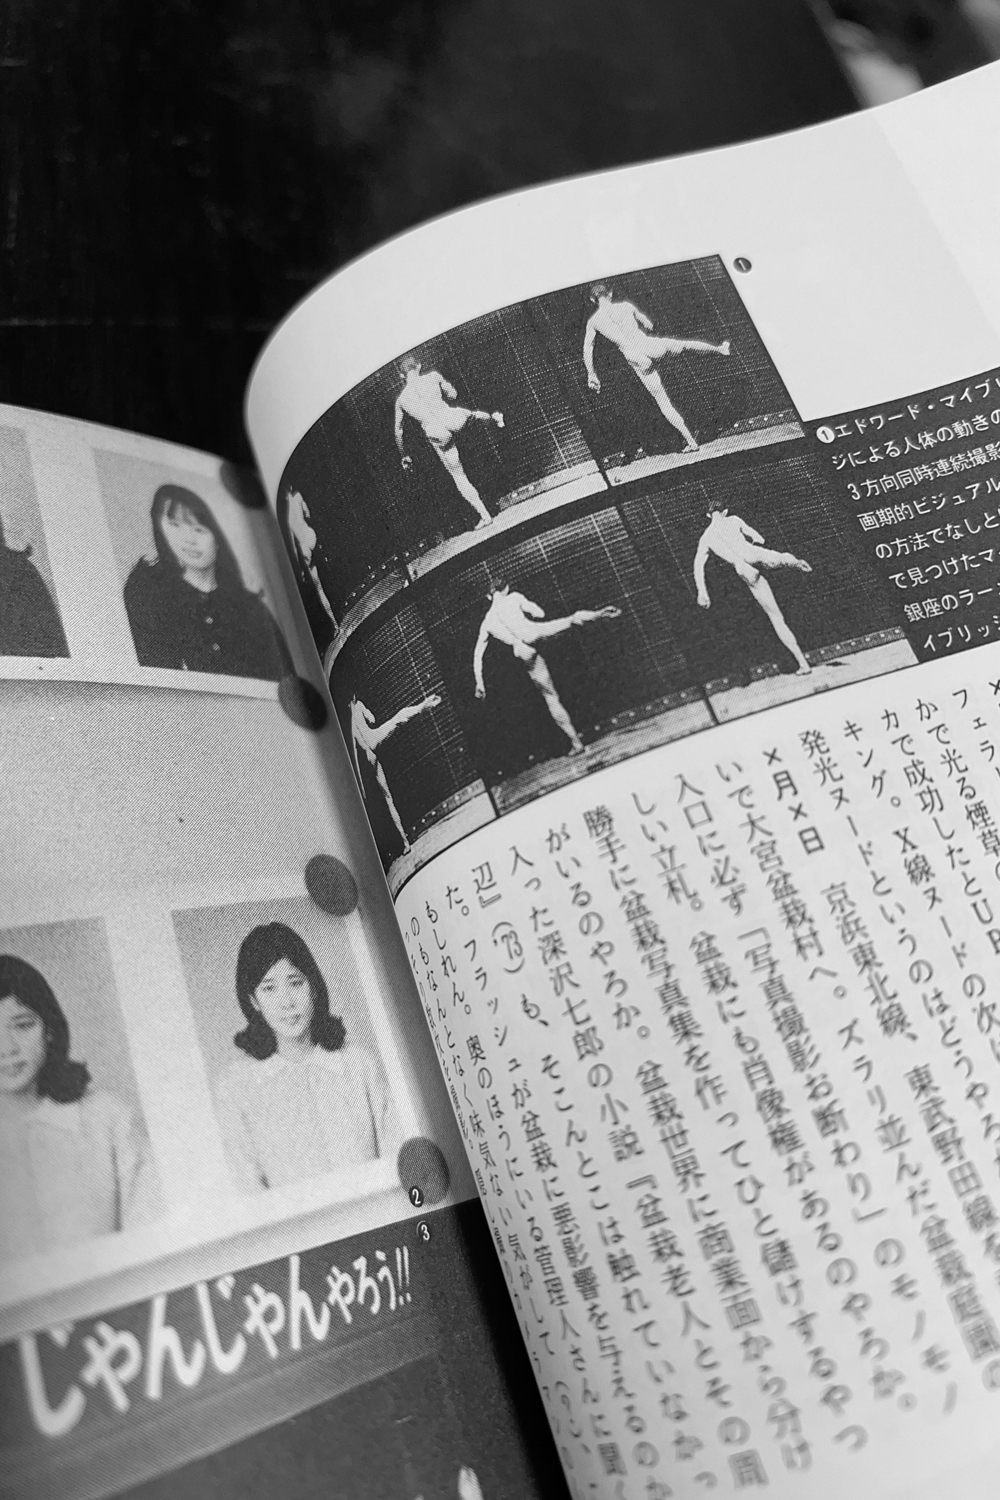 ❶
❶エドワード・マイブリ
ジによる人体の動きの
3方向同時連続撮影
画期的ビジュアル
の方法でなしと
で見つけたマ
銀座のラー
イブリッジ
かで光る煙草の
カで成功したとUP
キング。X線ヌードの次は
発光ヌードというのはどうやろか
×月×日　京浜東北線、東武野田線を
いで大宮盆栽村へ。ズラリ並んだ盆栽庭園の
入口に必ず「写真撮影お断わり」のモノモノ
しい立札。盆栽にも肖像権があるのやろか。
勝手に盆栽写真集を作ってひと儲けするやつ
がいるのやろか。盆栽世界に商業面から分け
入った深沢七郎の小説『盆栽老人とその周
辺』('73)も、そこんとこは触れていなかっ
た。フラッシュが盆栽に悪影響を与えるのか
もしれん。奥のほうにいる管理人さんに聞く
のもなんとなく味気ない気がして
❷
❸
じゃんじゃんやろう!!